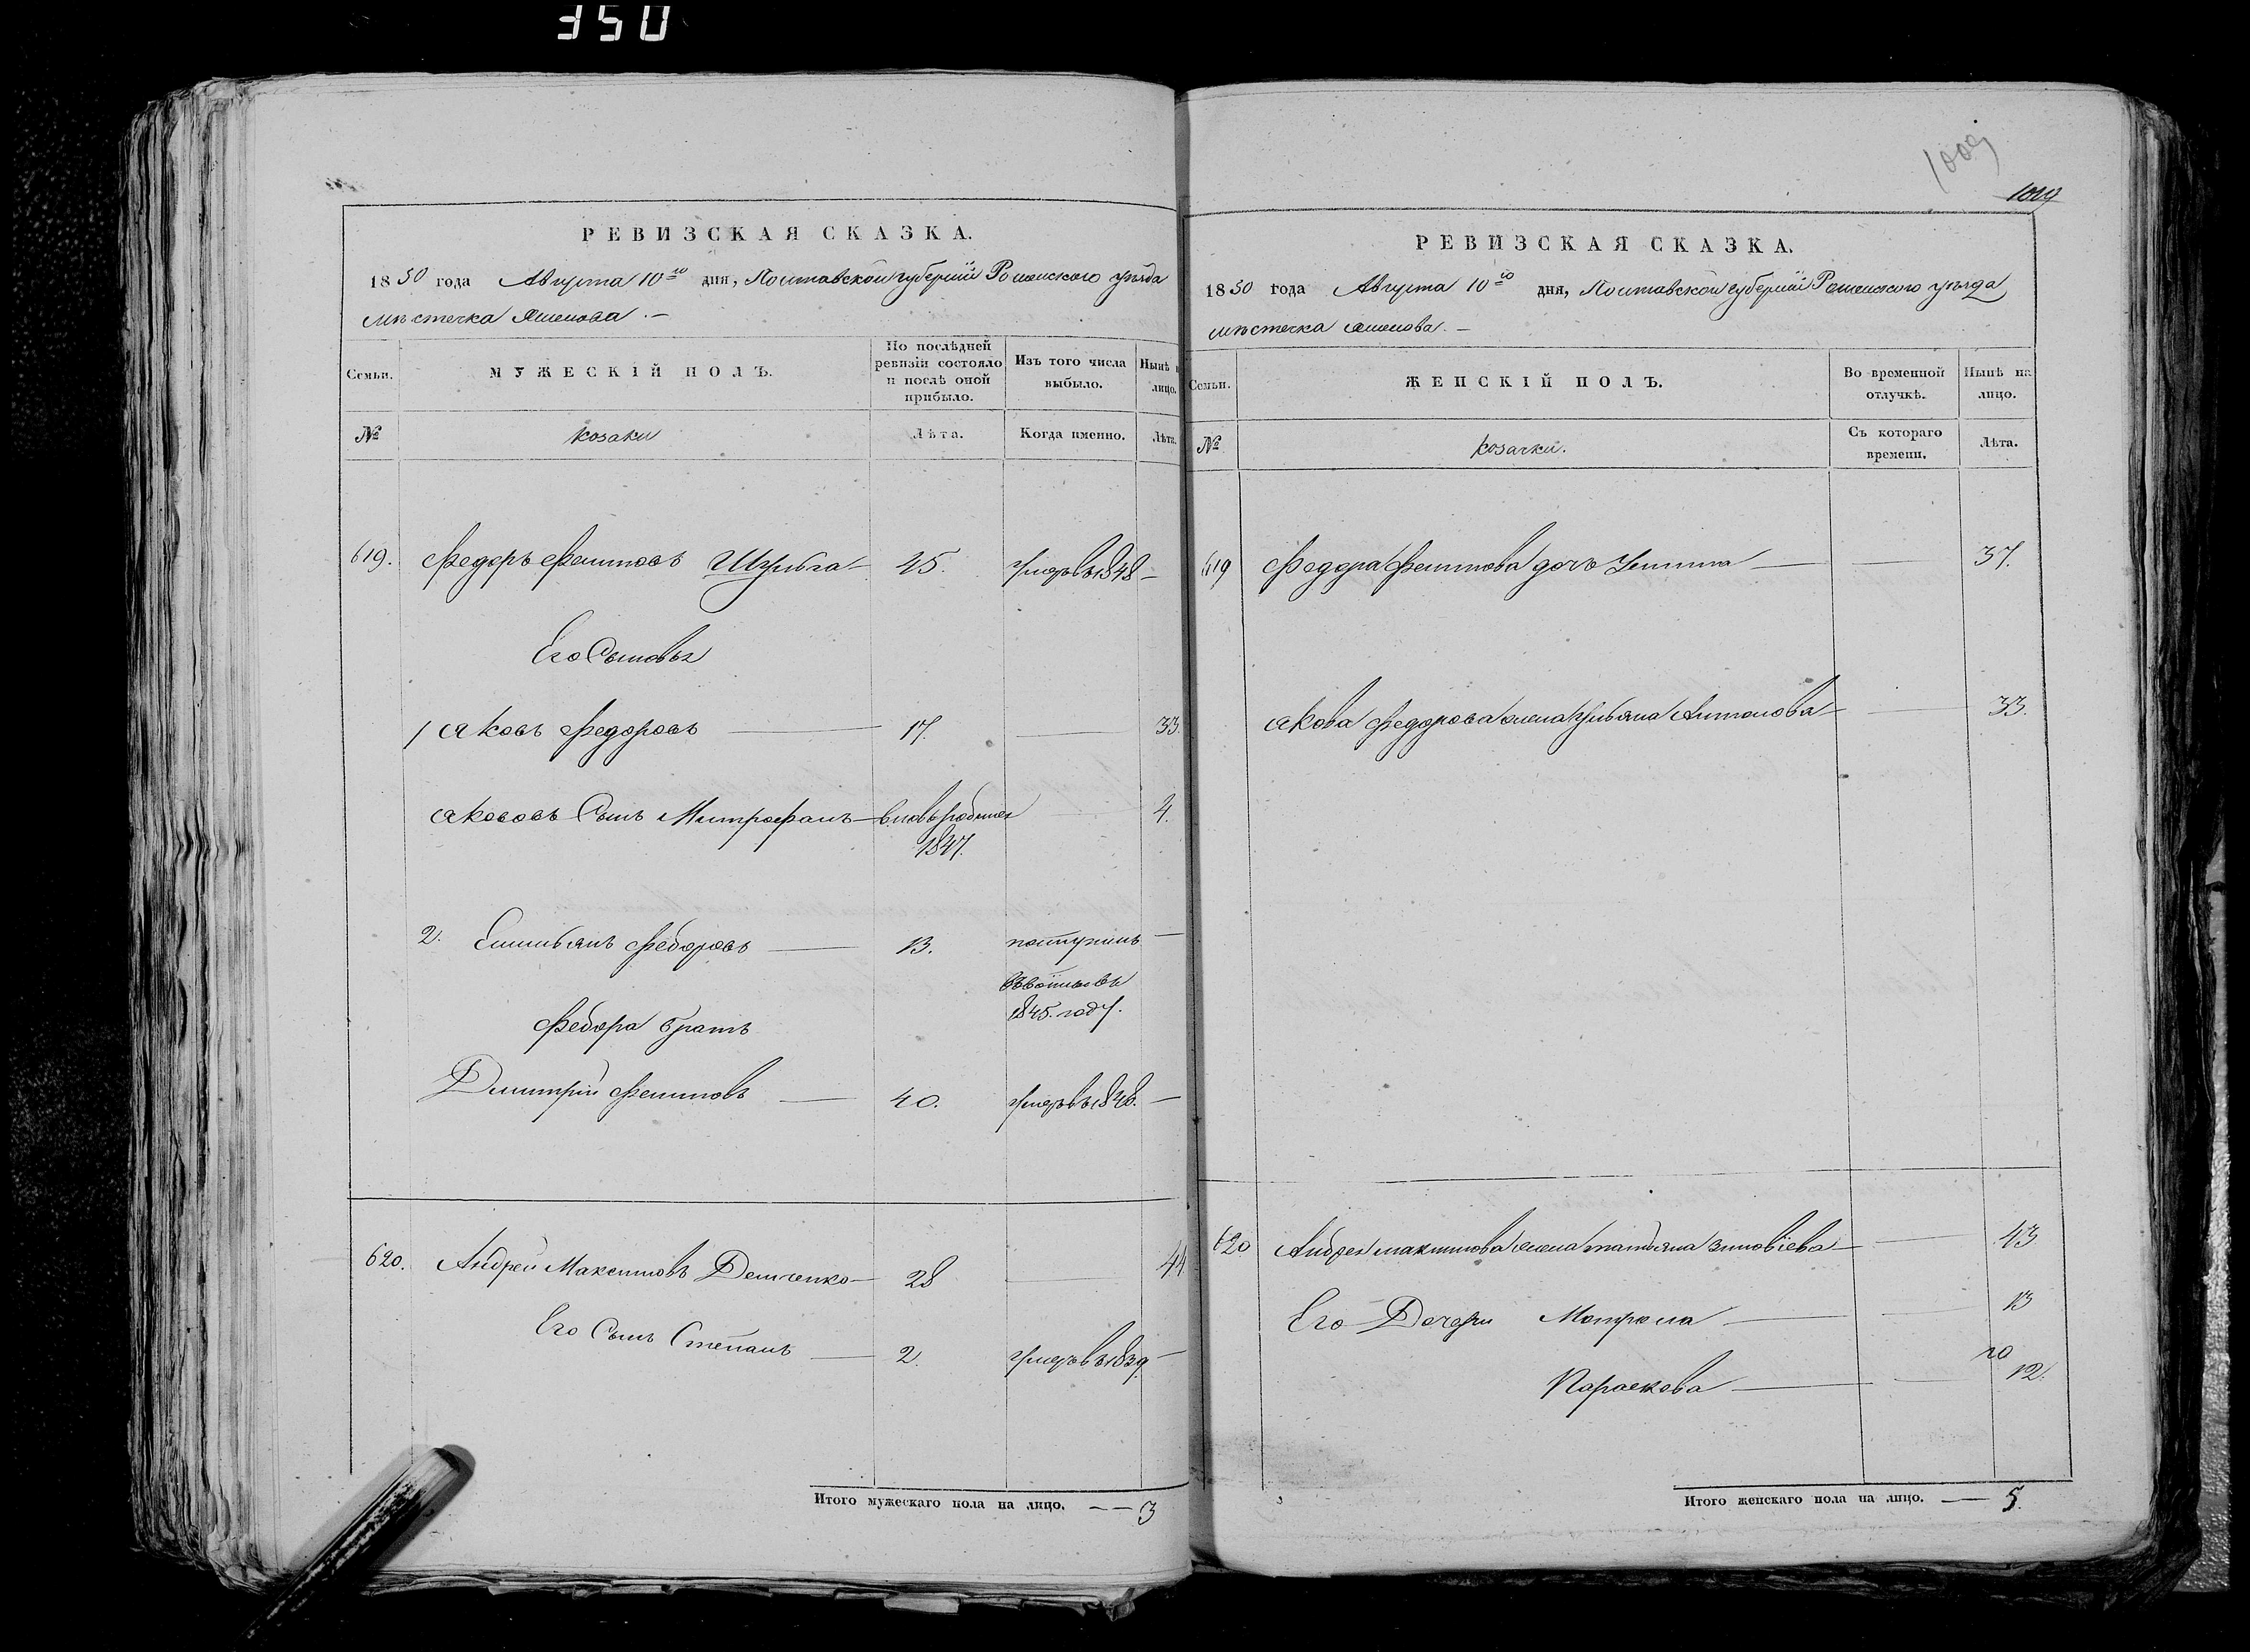 350
РЕВИЗСКАЯ СКАЗКА.
1850 года Августа 10го дня, Полтавской губернии Роменского уѣзда
мѣстечка
Семьи.
МУЖЕСКІЙ ПОЛЪ.
По послѣдней ревизіи состояло и послѣ оной прибыло.
Изъ того числа выбыло.
Нынѣ н лицо.
№
козаки
Лѣта.
Когда именно.
Лѣта.
619. Федоръ Фемиовъ 45. умеръ в 1848 —
Его Сыновья
1 Яковъ Федоровъ — 17. — 33.
Якововъ Сынъ Митрофанъ — вновь родился 4.
1847.
2. Емильянъ Федоровъ — 13. поступилъ —
1845. году.
Федора братъ
Дмитрій — 40. умеръ в 1848. —
620. Андрей Максимовъ Демченко — 28 — 44.
Его Сынъ Степанъ — 2. умеръ в 1839 —
Итого мужескаго пола на лицо. — — 3
1009
1009
РЕВИЗСКАЯ СКАЗКА.
1850 года Августа 10го дня, Полтавской губерніи Роменского уѣзда
мѣстечка
Семьи.
ЖЕНСКІЙ ПОЛЪ.
Во временной отлучкѣ.
Нынѣ на лицо.
№
козачки.
Съ котораго времени.
Лѣта.
619 Федора дочь — — 37.
Якова Федорова жена Ульяна Антонова — — 33.
620 Андрея Максимова жена татьяна зиновіева — — 43
Его Дочери Мотрона — — 13
10
Параскева — — 12.
Итого женскаго пола на лицо. — 5.